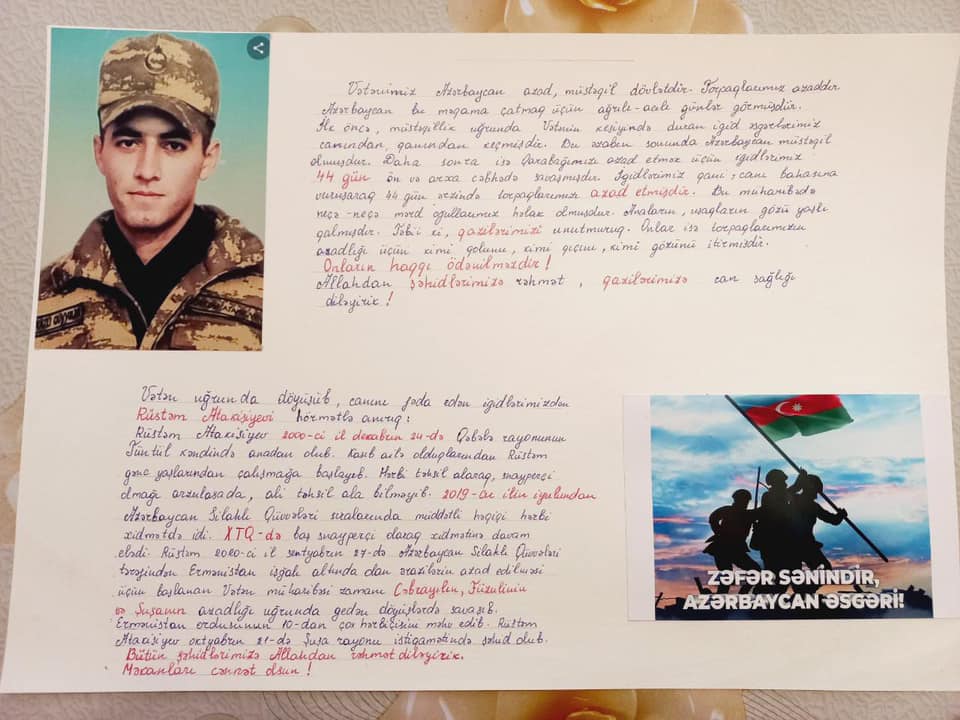 Vətənimiz Azərbaycan azad, müstəqil dövlətdir. Torpaqlarımız azaddır.
Azərbaycan bu məqama çatmaq üçün ağrılı-acılı günlər görmüşdür.
İlk öncə, müstəqillik uğrunda Vətənin keşiyində duran igid əsgərlərimiz
canından, qanından keçmişdir. Bu əzabın sonunda Azərbaycan müstəqil
olmuşdur. Daha sonra isə Qarabağımızı azad etmək üçün igidlərimiz
44 gün ön və arxa cəbhədə savaşmışdır. İgidlərimiz qanı, canı bahasına
vuruşaraq 44 gün ərzində torpaqlarımızı azad etmişdir. Bu müharibədə
neçə-neçə mərd oğullarımız həlak olmuşdur. Anaların, uşaqların gözü yaşlı
qalmışdır. Təbii ki, qazilərimizi unutmuruq. Onlar isə torpaqlarımızın
azadlığı üçün kimi qolunu, kimi qıçını, kimi gözünü itirmişdir.
Onların haqqı ödənilməzdir!
Allahdan şəhidlərimizə rəhmət, qazilərimizə can sağlığı
diləyirik!
Vətən uğrunda döyüşüb, canını fəda edən igidlərimizdən
Rüstəm Atakişiyevi hörmətlə anırıq:
Rüstəm Atakişiyev 2000-ci il dekabrın 24-də Qəbələ rayonunun
Tüntül kəndində anadan olub. Kasıb ailə olduqlarından Rüstəm
gənc yaşlarından çalışmağa başlayıb. Hərbi təhsil alaraq, snayperçi
olmağı arzulasada, ali təhsil ala bilməyib. 2019-cu ilin iyulundan
Azərbaycan Silahlı Qüvvələri sıralarında müddətli həqiqi hərbi
xidmətdə idi. XTQ-də baş snayperçi olaraq xidmətinə davam
elədi. Rüstəm 2020-ci il sentyabrın 27-də Azərbaycan Silahlı Qüvvələri
tərəfindən Ermənistan işğalı altında olan ərazilərin azad edilməsi
üçün başlanan Vətən müharibəsi zamanı Cəbrayılın, Füzulinin
və Şuşanın azadlığı uğrunda gedən döyüşlərdə savaşıb.
Ermənistan ordusunun 10-dan çox hərbiçisini məhv edib. Rüstəm
Atakişiyev oktyabrın 21-də Şuşa rayonu istiqamətində şəhid olub.
Bütün şəhidlərimizə Allahdan rəhmət diləyirik.
Məkanları cənnət olsun!
ZƏFƏR SƏNİNDİR,
AZƏRBAYCAN ƏSGƏRİ!